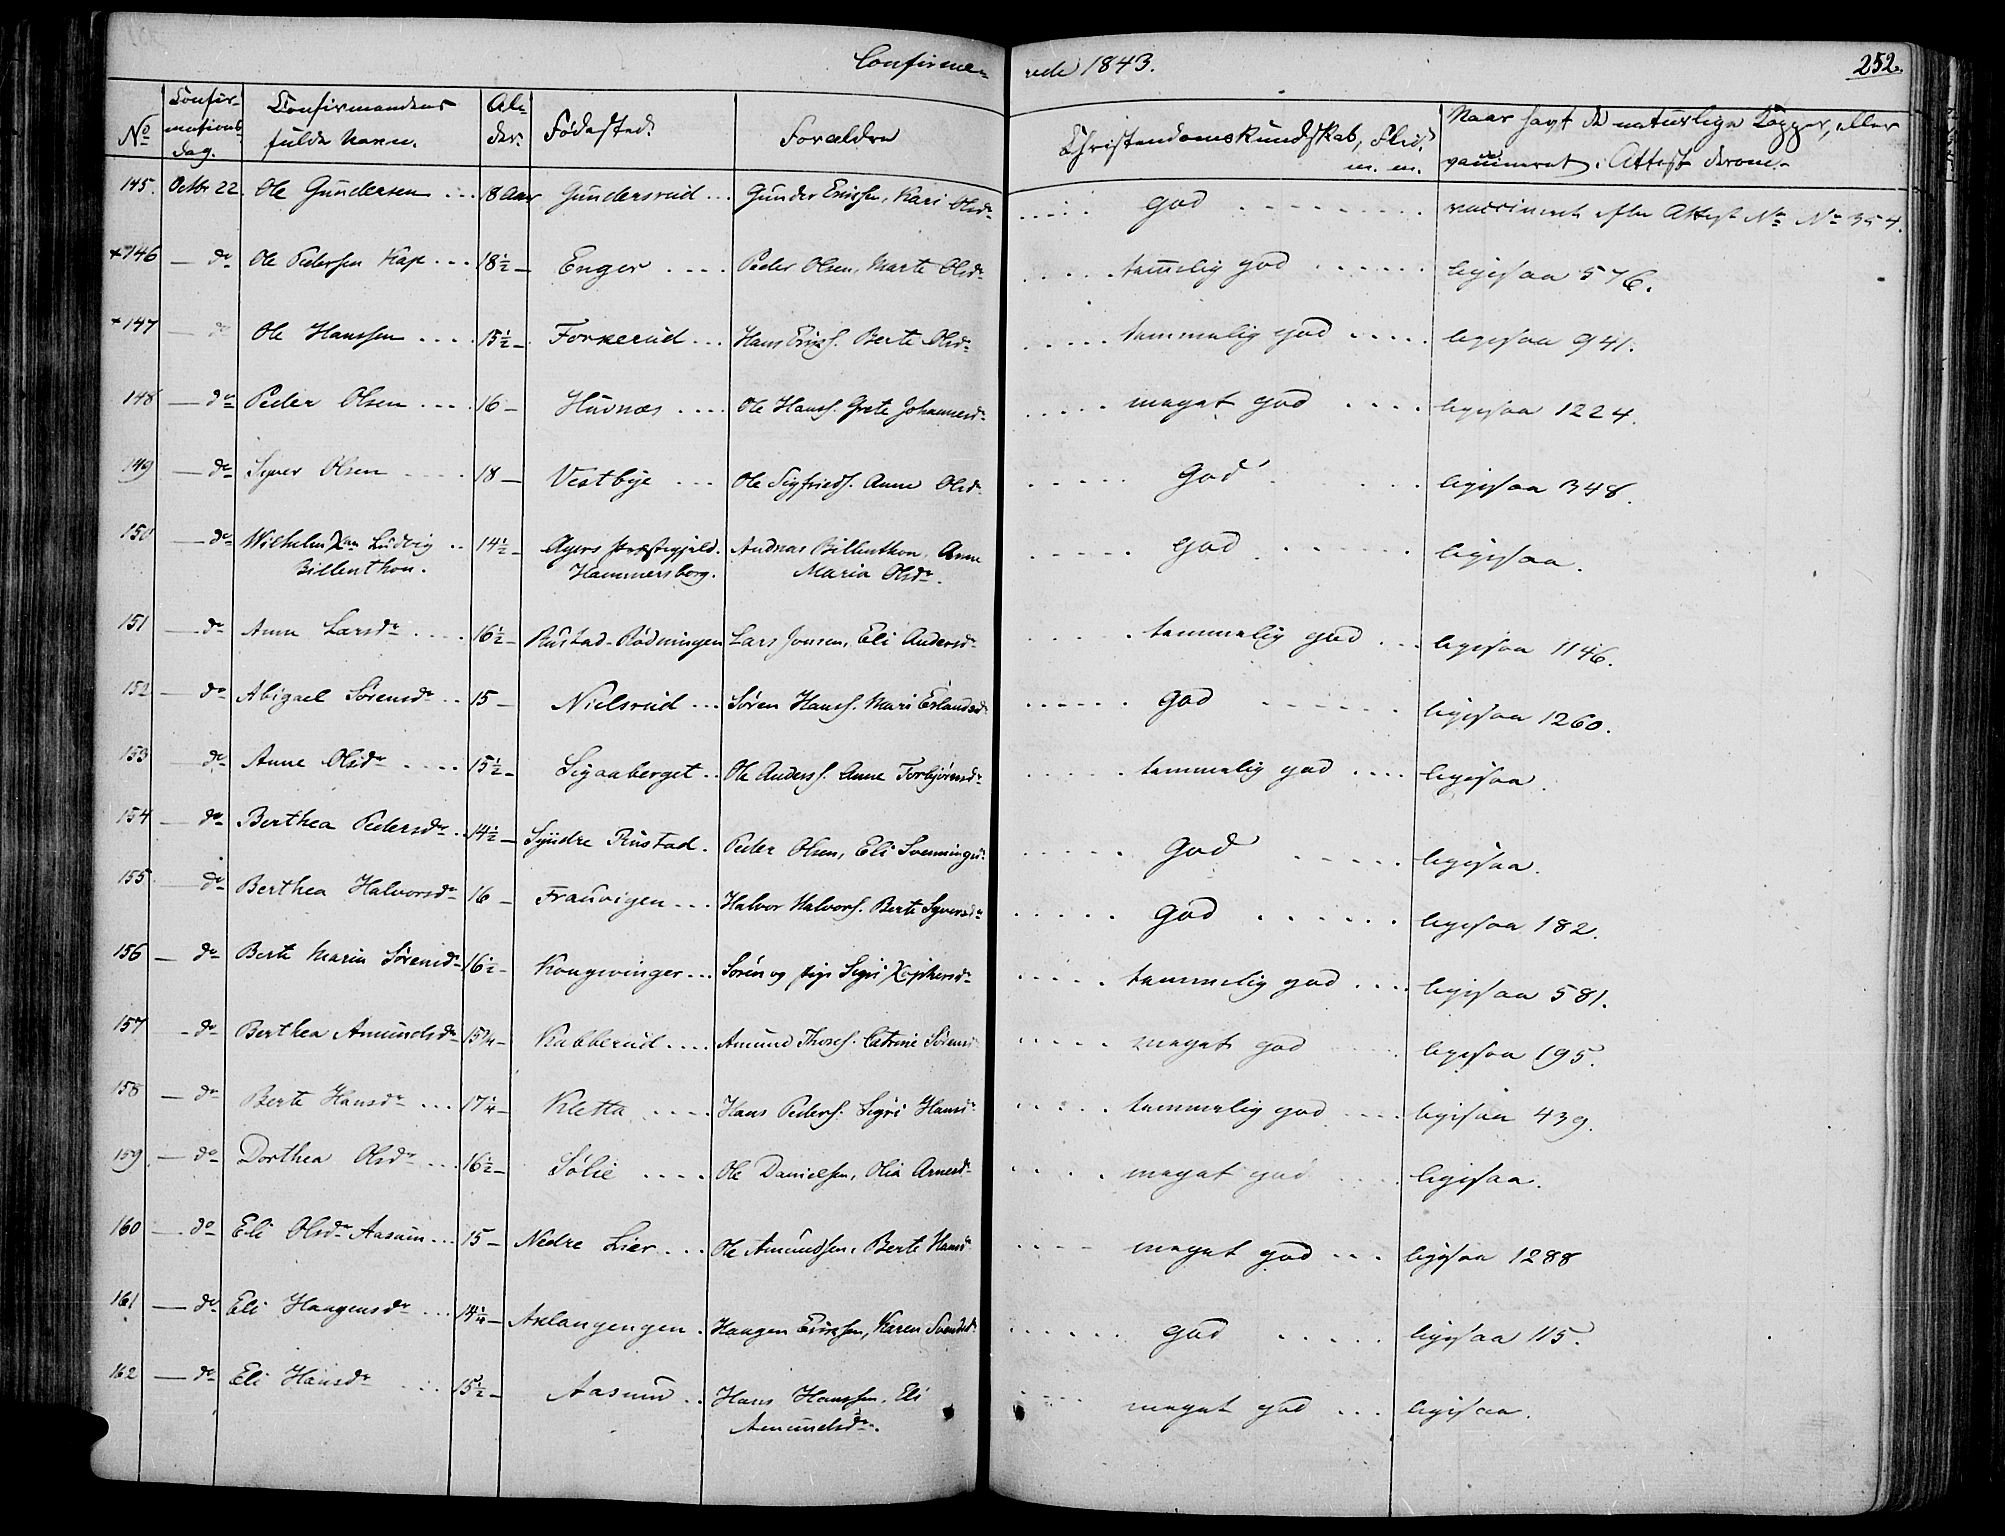 Confirmerede 1843.
252.
No
Confirmationsdag.
Confirmandens fulde Navn.
Alder.
Fødested.
Forældre
Christendomskundskab, Flid. m. m.
Naar havt de naturlige Kopper, eller vaccineret. Attest derom.
145. Octbr 22. Ole Gundersen 18 Aar Gundersrud Gunder Erichsen, Kari Olsdr god vaccineret efter Attest No No 354.
+146 — do Ole Pedersen Kap 18½ — Enger Peder Olsen, Marte Olsdr temmelig god ligesaa 576.
+147 — do Ole Hanssen 15½ — Forkerud Hans Erichs. Berte Olsdr temmelig god ligesaa 941.
148 — do Peder Olsen 16 — Huvnæs Ole Hanss. Grete Johannesdr meget god ligesaa 1224.
149 — do Syver Olsen 18 — Vestbye Ole Sigfrieds. Anne Olsdr God ligesaa 348.
150 — do Wilhelm Xan Ludvig 14½ — Agers Præstegjeld. Andreas Billenthon, Anne god ligesaa.
Billenthon. Hammersborg. Maria Olsdr.
151 — do Anne Larsdr 16½ — Rustad-Rødningen Lars Jonsen, Eli Andersdr temmelig god ligesaa 1146.
152 — do Abigael Sørensdr 15 — Nielsrud Søren Hanss. Mari Erlandsdr god ligesaa 1260.
153 — do Anne Olsdr 15½ — Ligaaberget Ole Anderss. Anne Torbjørnsdr temmelig god ligesaa.
154 — do Berthea Pedersdr 14½ — Syndre Rustad Peder Olsen, Eli Svenningsd. God ligesaa.
155 — do Berthea Halvorsdr 16 — Frauvigen Halvor Halvors. Berte Syversdr God ligesaa 182.
156 — do Berte Marie Sørensdr 16½ — Kongsvinger Søren og pige Sigri Xophersdr temmelig god ligesaa 581.
157 — do Berthea Amundsdr 15¾ — Kabberud Amund Thores. Catrine Sørens meget god ligesaa 195.
158 — do Berte Hansdr 17¼ — Kletta Hans Peders. Sigri Hansd. temmelig god ligesaa 439.
159 — do Dorthea Olsdr 16½ — Sølie Ole Danielsen, Olia Arnesdr meget god ligesaa.
160 — do Eli Olsdr Aasum 15 — Nedre Lier Ole Amundsen, Berte Hansd meget god ligesaa 1288
161 — do Eli Haagensdr 14¼ — Aklangengen Haagen Erichsen, Karen Svendsd. god ligesaa 115.
162 — do Eli Hansdr 15½ — Aasum Hans Hanssen, Eli meget god ligesaa.
Amundsdr.